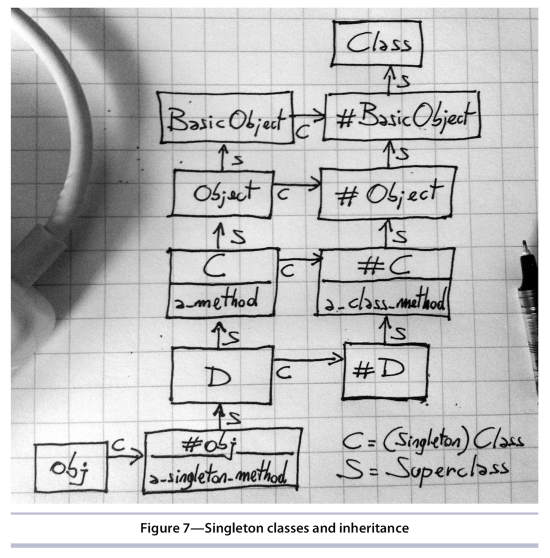 Class
S
BasicObject
C
#BasicObject
S
S
Object
C
#Object
S
S
C
a_method
C
#C
a_class_method
S
S
D
C
#D
S
obj
C
#obj
a_singleton_method
C = (Singleton) Class
S = Superclass
Figure 7—Singleton classes and inheritance